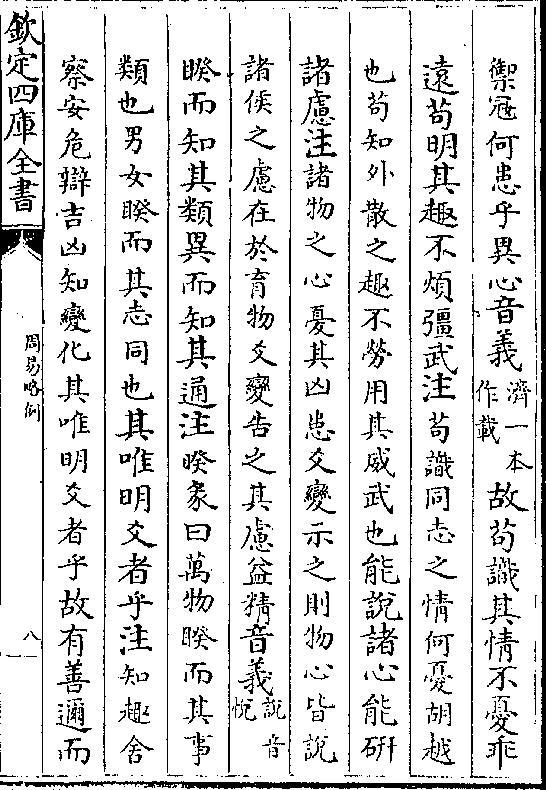 禦冦何患乎異心音義濟一本作載故苟識其情不憂乖
遠苟明其趣不煩彊武注苟識同志之情何憂胡越
也苟知外散之趣不勞用其威武也能說諸心能硏
諸慮注諸物之心憂其凶患爻變示之則物心皆說
諸侯之慮在於育物爻變告之其慮益精音義說音悅
睽而知其類異而知其通注睽彖曰萬物睽而其事
類也男女睽而其志同也其唯明爻者乎注知趣舍
察安危辯吉凶知變化其唯明爻者乎故有善邇而
欽定四庫全書
周易略例
八